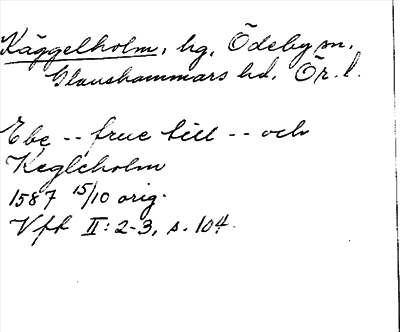 Käggelholm, hg, Ödeby sn,
Glanshammars hd, Ör. l.
Ebe -- frue till -- och
Kegleholm
1587 15/10 orig.
Vfk II: 2-3, s. 104.